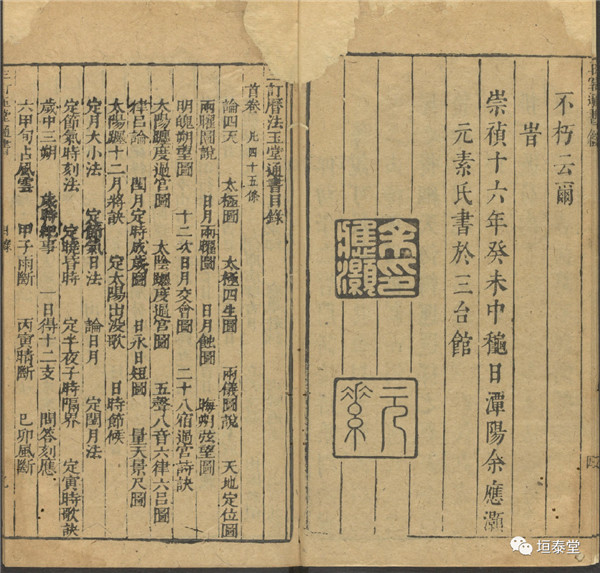 不朽云爾
旹
崇禎十六年癸未中穐日潭陽余應灝
元素氏書於三台館
余印應灝
元素
訂曆法玉堂通書目錄
首卷 凡四十五條
論四天 太極圖 太極四生圖 兩儀圖說 天地定位圖
兩曜圖說 日月兩曜圖 日月蝕圖 晦朔弦望圖
明魄朔望圖 十二次日月交會圖 二十八宿過宮詩訣
太陽躔度過宮圖 太陰躔度過宮圖 五聲八音六律六呂圖
律呂論 閏月定時成歲圖 日永日短圖 量天景尺圖
太陽躔十二月將訣 定太陽出沒歌 日時節候
定月大小法 定節氣日法 論日月 定閏月法
定節氣時刻法 定曉昏時 定半夜子時隔界 定寅時歌訣
歲中三朔 紀事 一日得十二支 問答刻應
六甲句占風雲 甲子雨斷 丙寅晴斷 己卯風斷
玉堂通書
垣泰堂